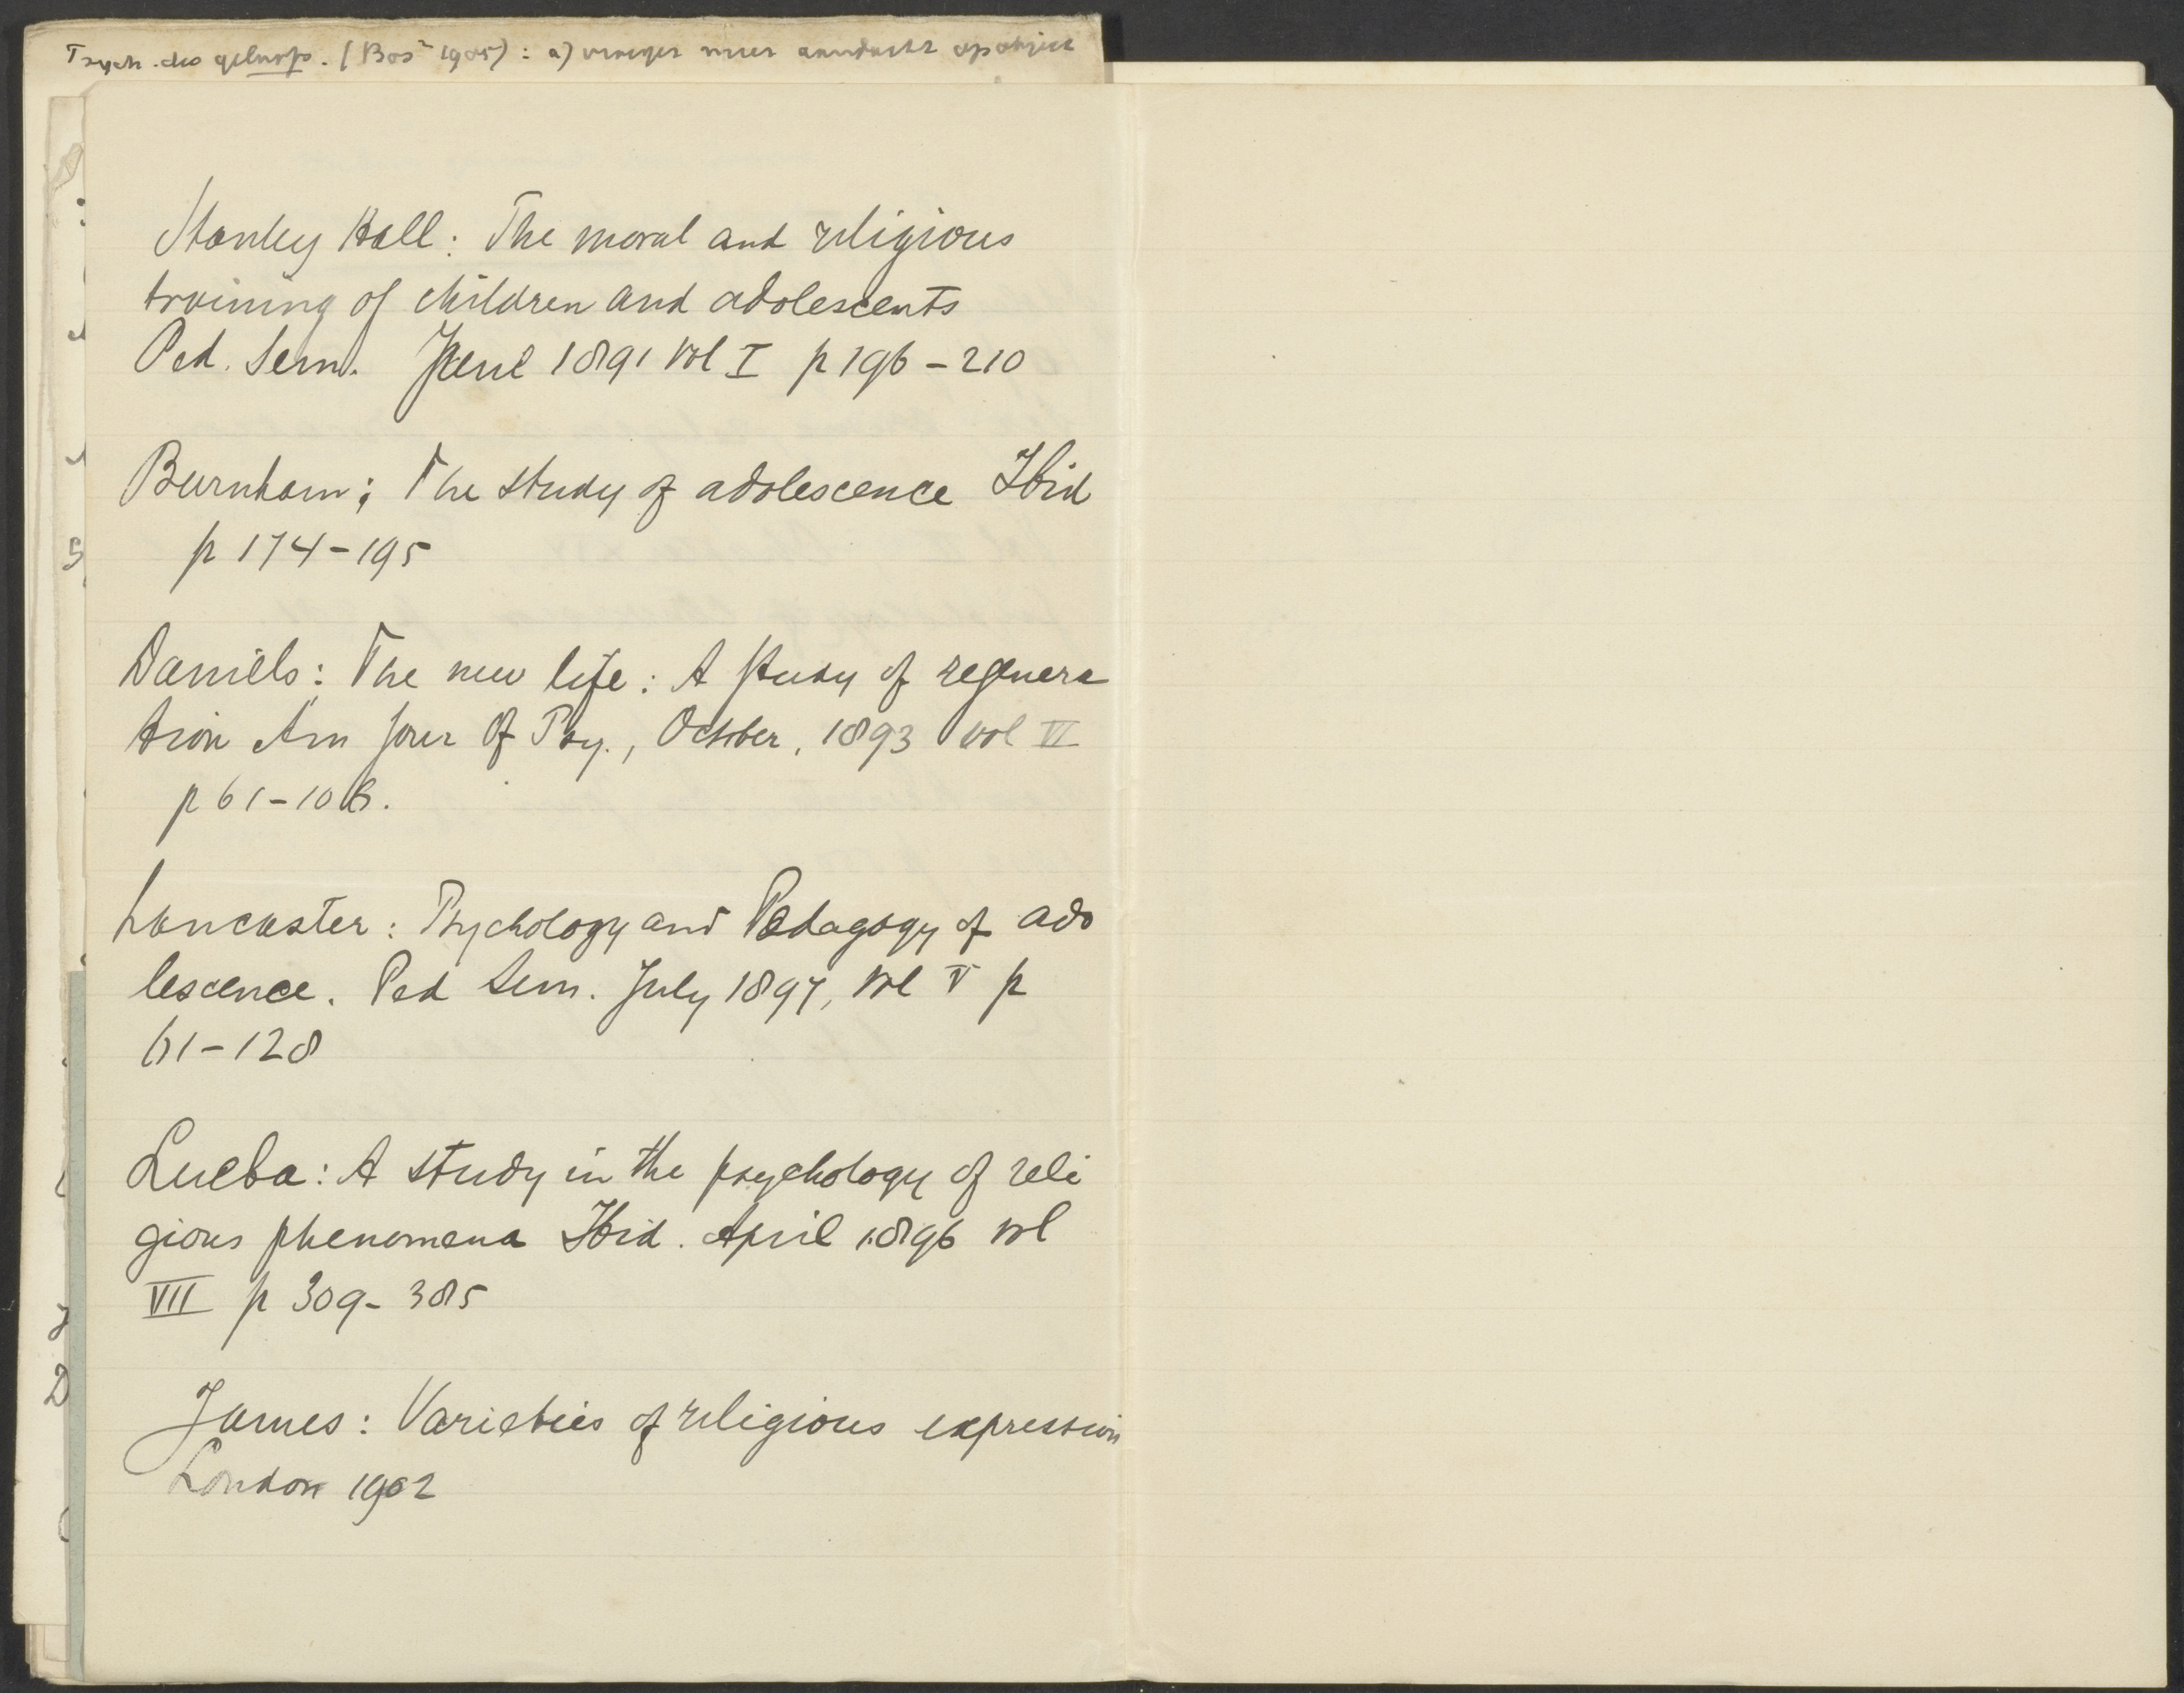 Psych. des geloofs. (Bos² 1905): a) vroeger meer aandacht op object
Stanley Hall: The moral and religious
training of children and adolescents
Ped. Sem. June 1891 Vol I p 196 - 210
Burnham; The study of adolescence Ibid
p 174-195
Daniels: The new life: A study of regenera
tion Am Jour Of Psy., October, 1893 Vol VI
p 61-106.
Lancaster: Psychology and Pedagogy of ado
lescence. Ped Sem. July 1897, Vol V p
61-128
Leuba: A study in the psychology of reli
gious phenomena Ibid. April 1896 Vol
VII p 309- 385
James: Varieties of religious expression
London 1902